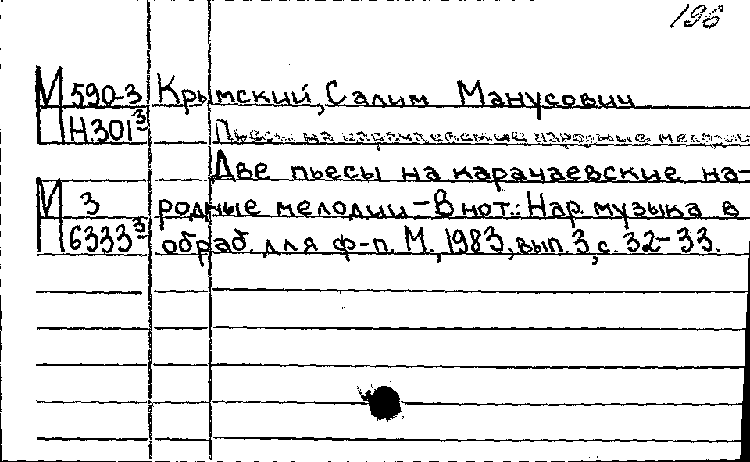 196
М 590-3 Крымский, Салим Манусович
Н301³ Пьесы на карачаевские народные мелодии
Две пьесы на карачаевские на-
М 3 родные мелодии – В нот.: Нар. музыка в
6333³ обраб. для ф-п. М., 1983, вып. 3, с. 32–33.